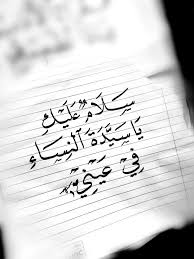 سَلَامٌ عَلَيْكِ
يَا سَيِّدَةَ النِّسَاءِ
فِي عَيْنِي